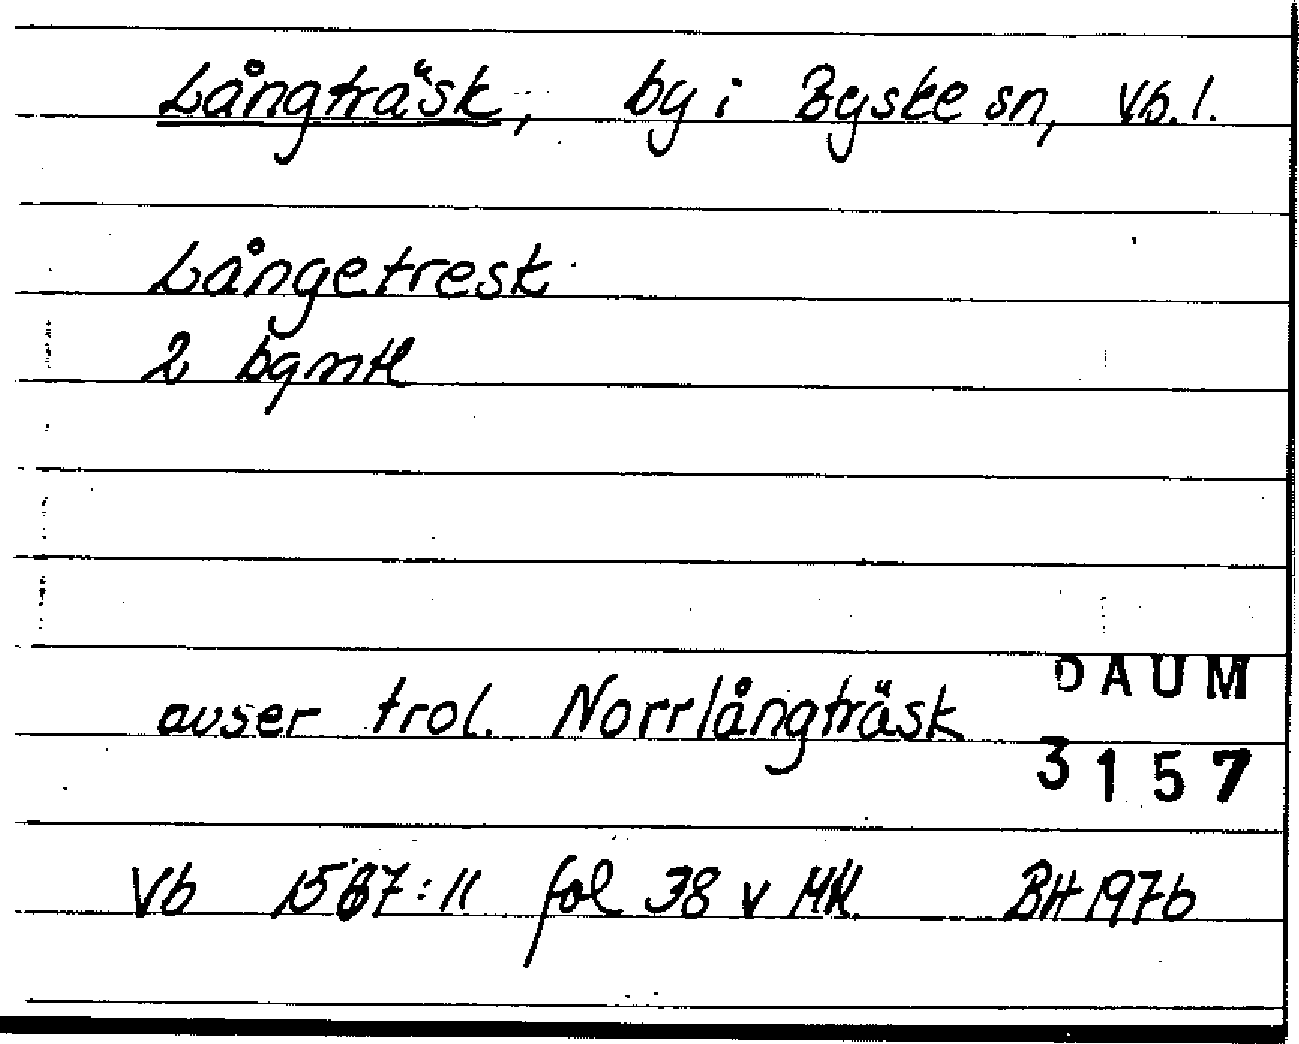 Långträsk, by i Byske sn, Vb. l.
Långetresk
2 bgmtl
avser trol. Norrlångträsk
DAUM
3157
Vb 1567:11 fol 38 v MH. BH 1976